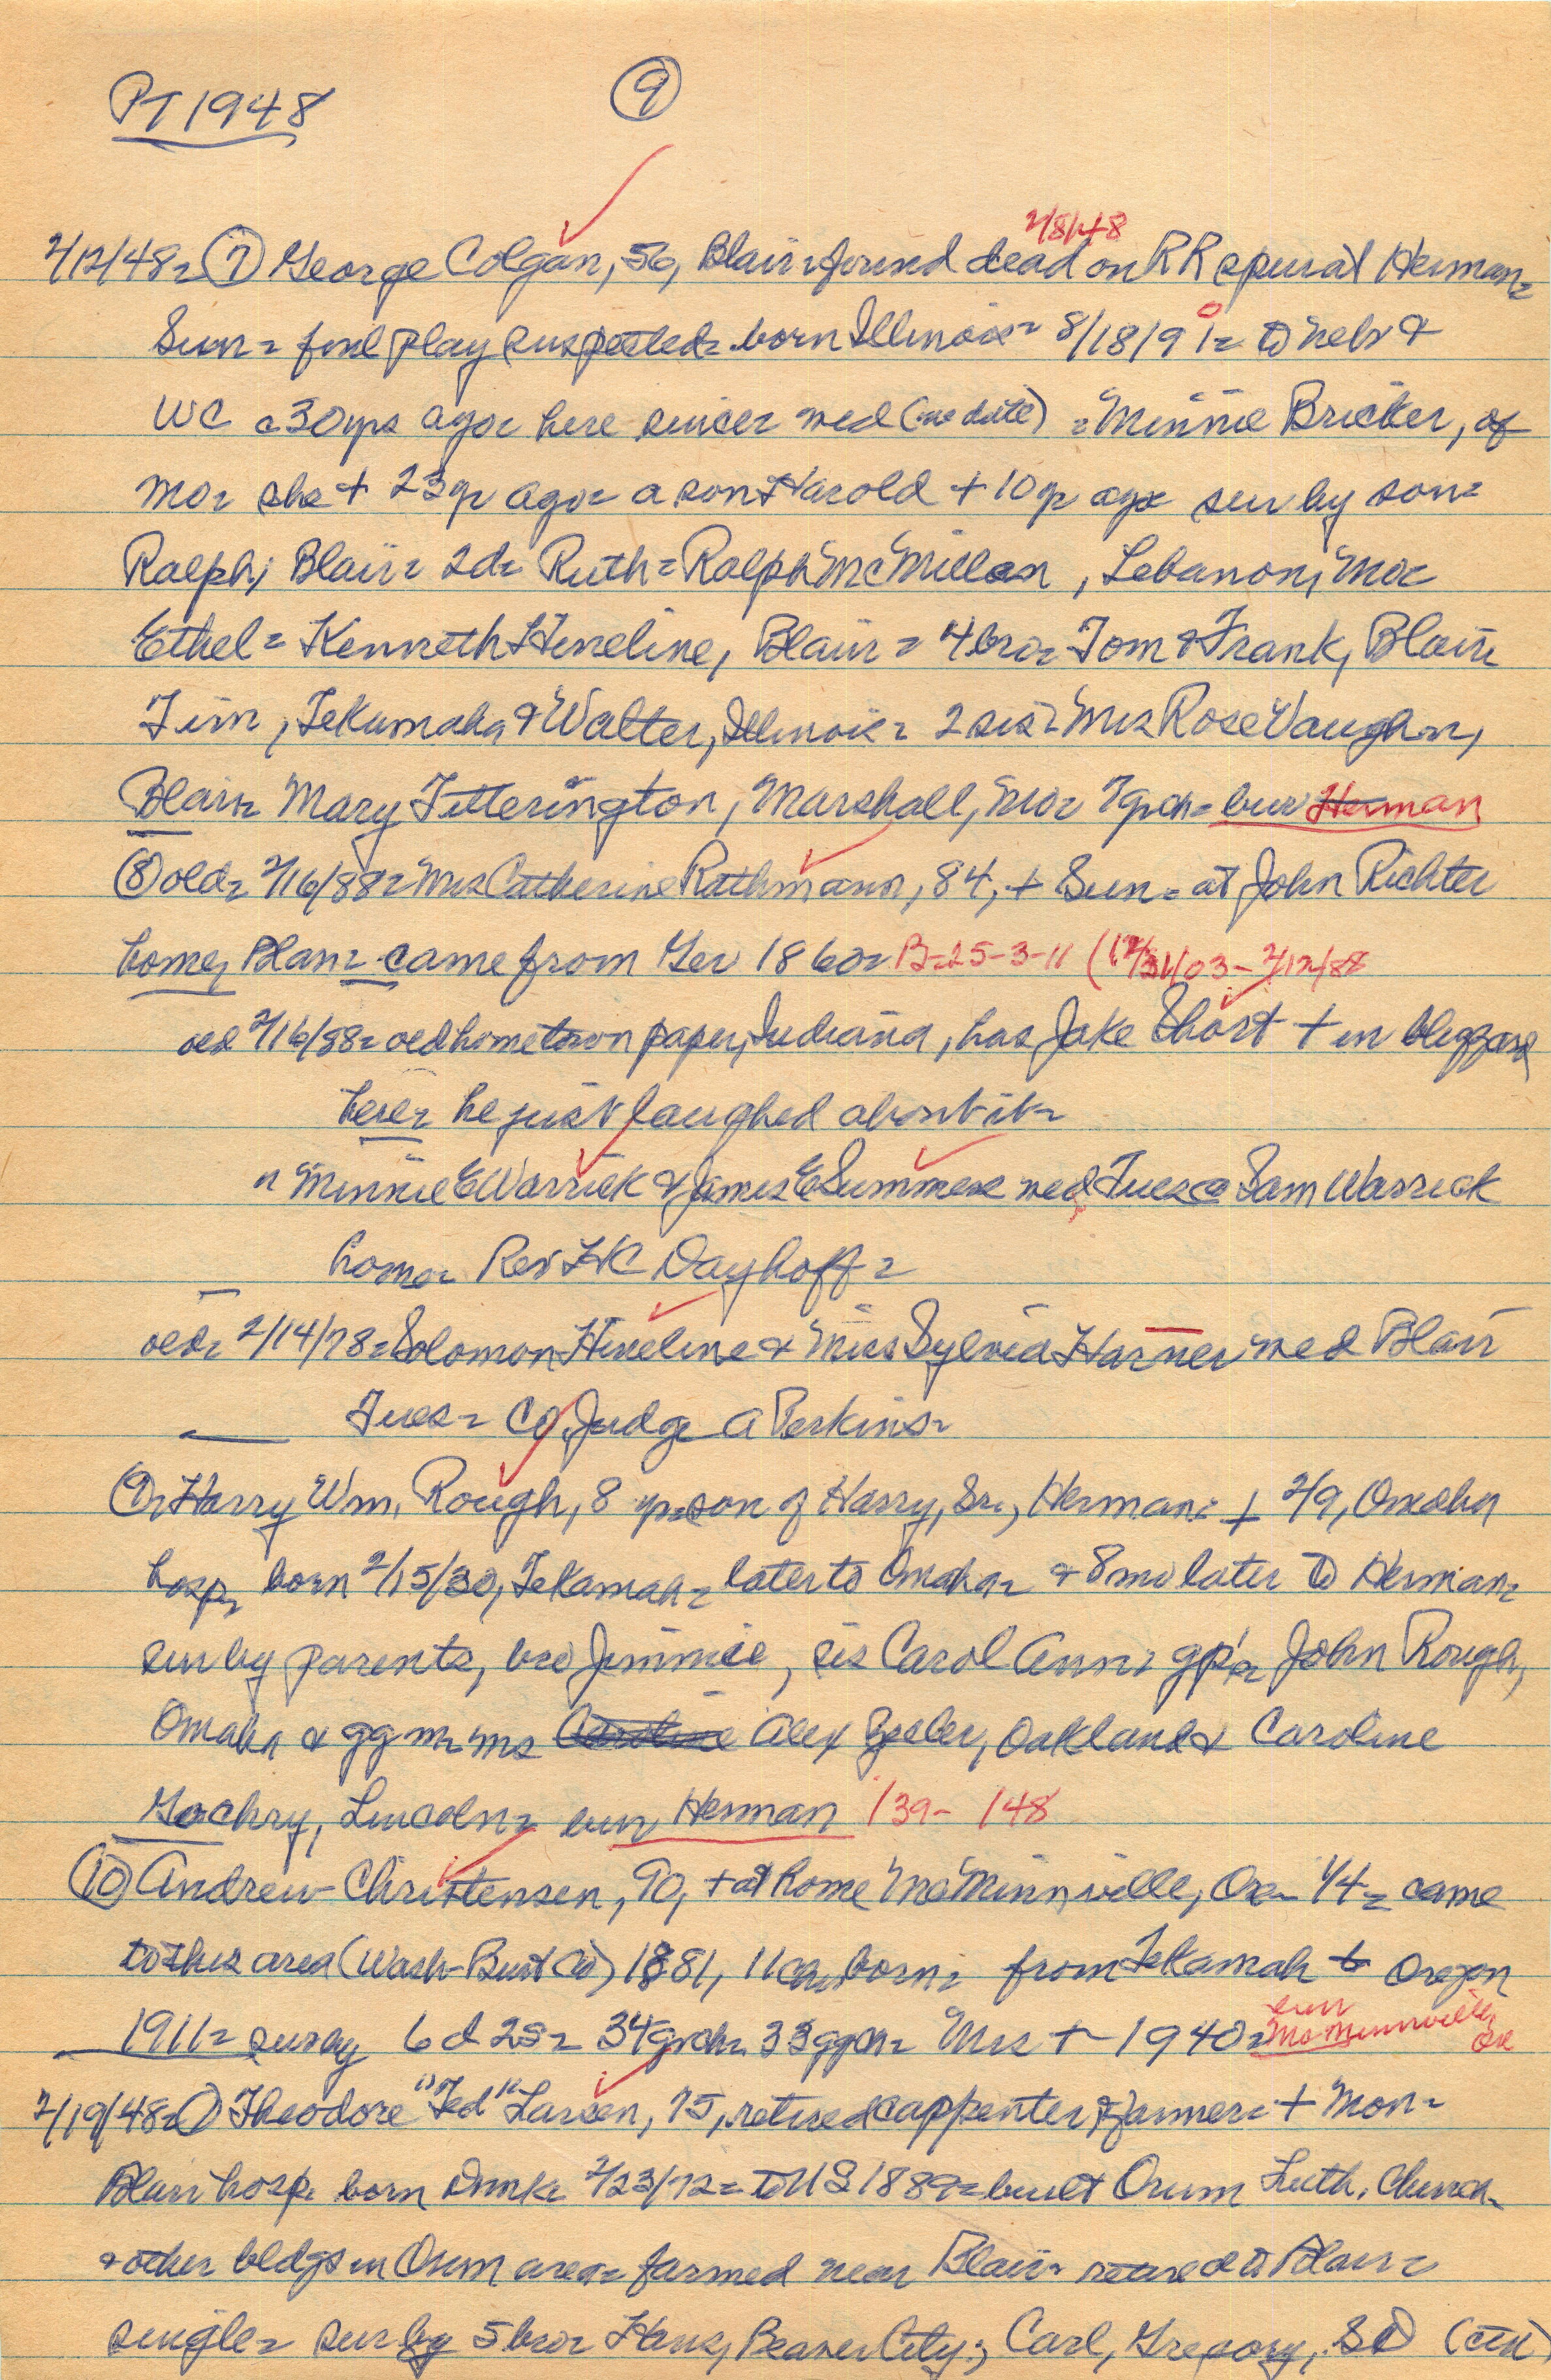 PT 1948 9
2/8/48
2/12/48= 7 George Colgan, 56, Blair= found dead on RR spur at Herman=
Sun= foul play suspected= born Illinois= 8/18/91= to Nebr &
WC 30 yrs ago= here since= med (no date) = Minnie Bricker, of
Mo= she + 23 yr ago= a son Harold + 10 yr ago sur by son=
Ralph, Blair= 2d= Ruth= Ralph McMillan, Lebanon, Mo=
Ethel= Kenneth Hineline, Blair= 4 bro= Tom & Frank, Blair
Jim, Tekamaha & Walter, Illinois= 2 sis= Mrs Rose Vaughn,
Blair= Mary Titterington, Marshall, Mo= 7 grch= bur Herman
8 old= 2/16/88= Mrs Catherine Rathmann, 84, + Sun= at John Richter
home, Blair= came from Ger 1860= B-25-3-11 (12/31/03- 2/12/88
old 2/16/88= old hometown paper, Indiana, has Jake Short + in blizzard
here= he just laughed about it=
" Minnie E Warrick & James E Summers med Tues @ Sam Warrick
home= Rev Dayhoff=
old= 2/14/78= Solomon Hineline & Miss Sylvia Harner med Blair
Tues= Co Judge A Perkins=
9= Harry Wm. Rough, 8 yr= son of Harry, Sr., Herman= + 2/9, Omaha
hosp= born 2/15/39, Tekamah= later to Omaha= & 8 mo later to Herman=
sur by parents, bro Jimmie, sis Carol Ann= gp'a John Rough,
Omaha & gg m= Mrs Caroline Alex, Oakland & Caroline
Lincoln= bur Herman /39- /48
10 Andrew Christensen, 90, + at home McMinnville, Ore 1/4= came
to this area (Wash-Burt Co) 1881, 11 ch born= from Tekamah to Oregon
bur
1911= sur by 6 d 2 s= 34 grch= 33 ggch= Mrs + 1940= McMinnville, Ore
2/19/48= Theodore "Ted" Larsen, 75, retired cappenter & farmer= + Mon=
Blair hosp= born Dnmk 2/23/72= to US 1889= built Orum Luth. Church=
& other bldgs in Orum area= farmed near Blair= retired to Blair=
single= sur by 5 bro= Hans, Beaver City; Carl, Gregory, SD